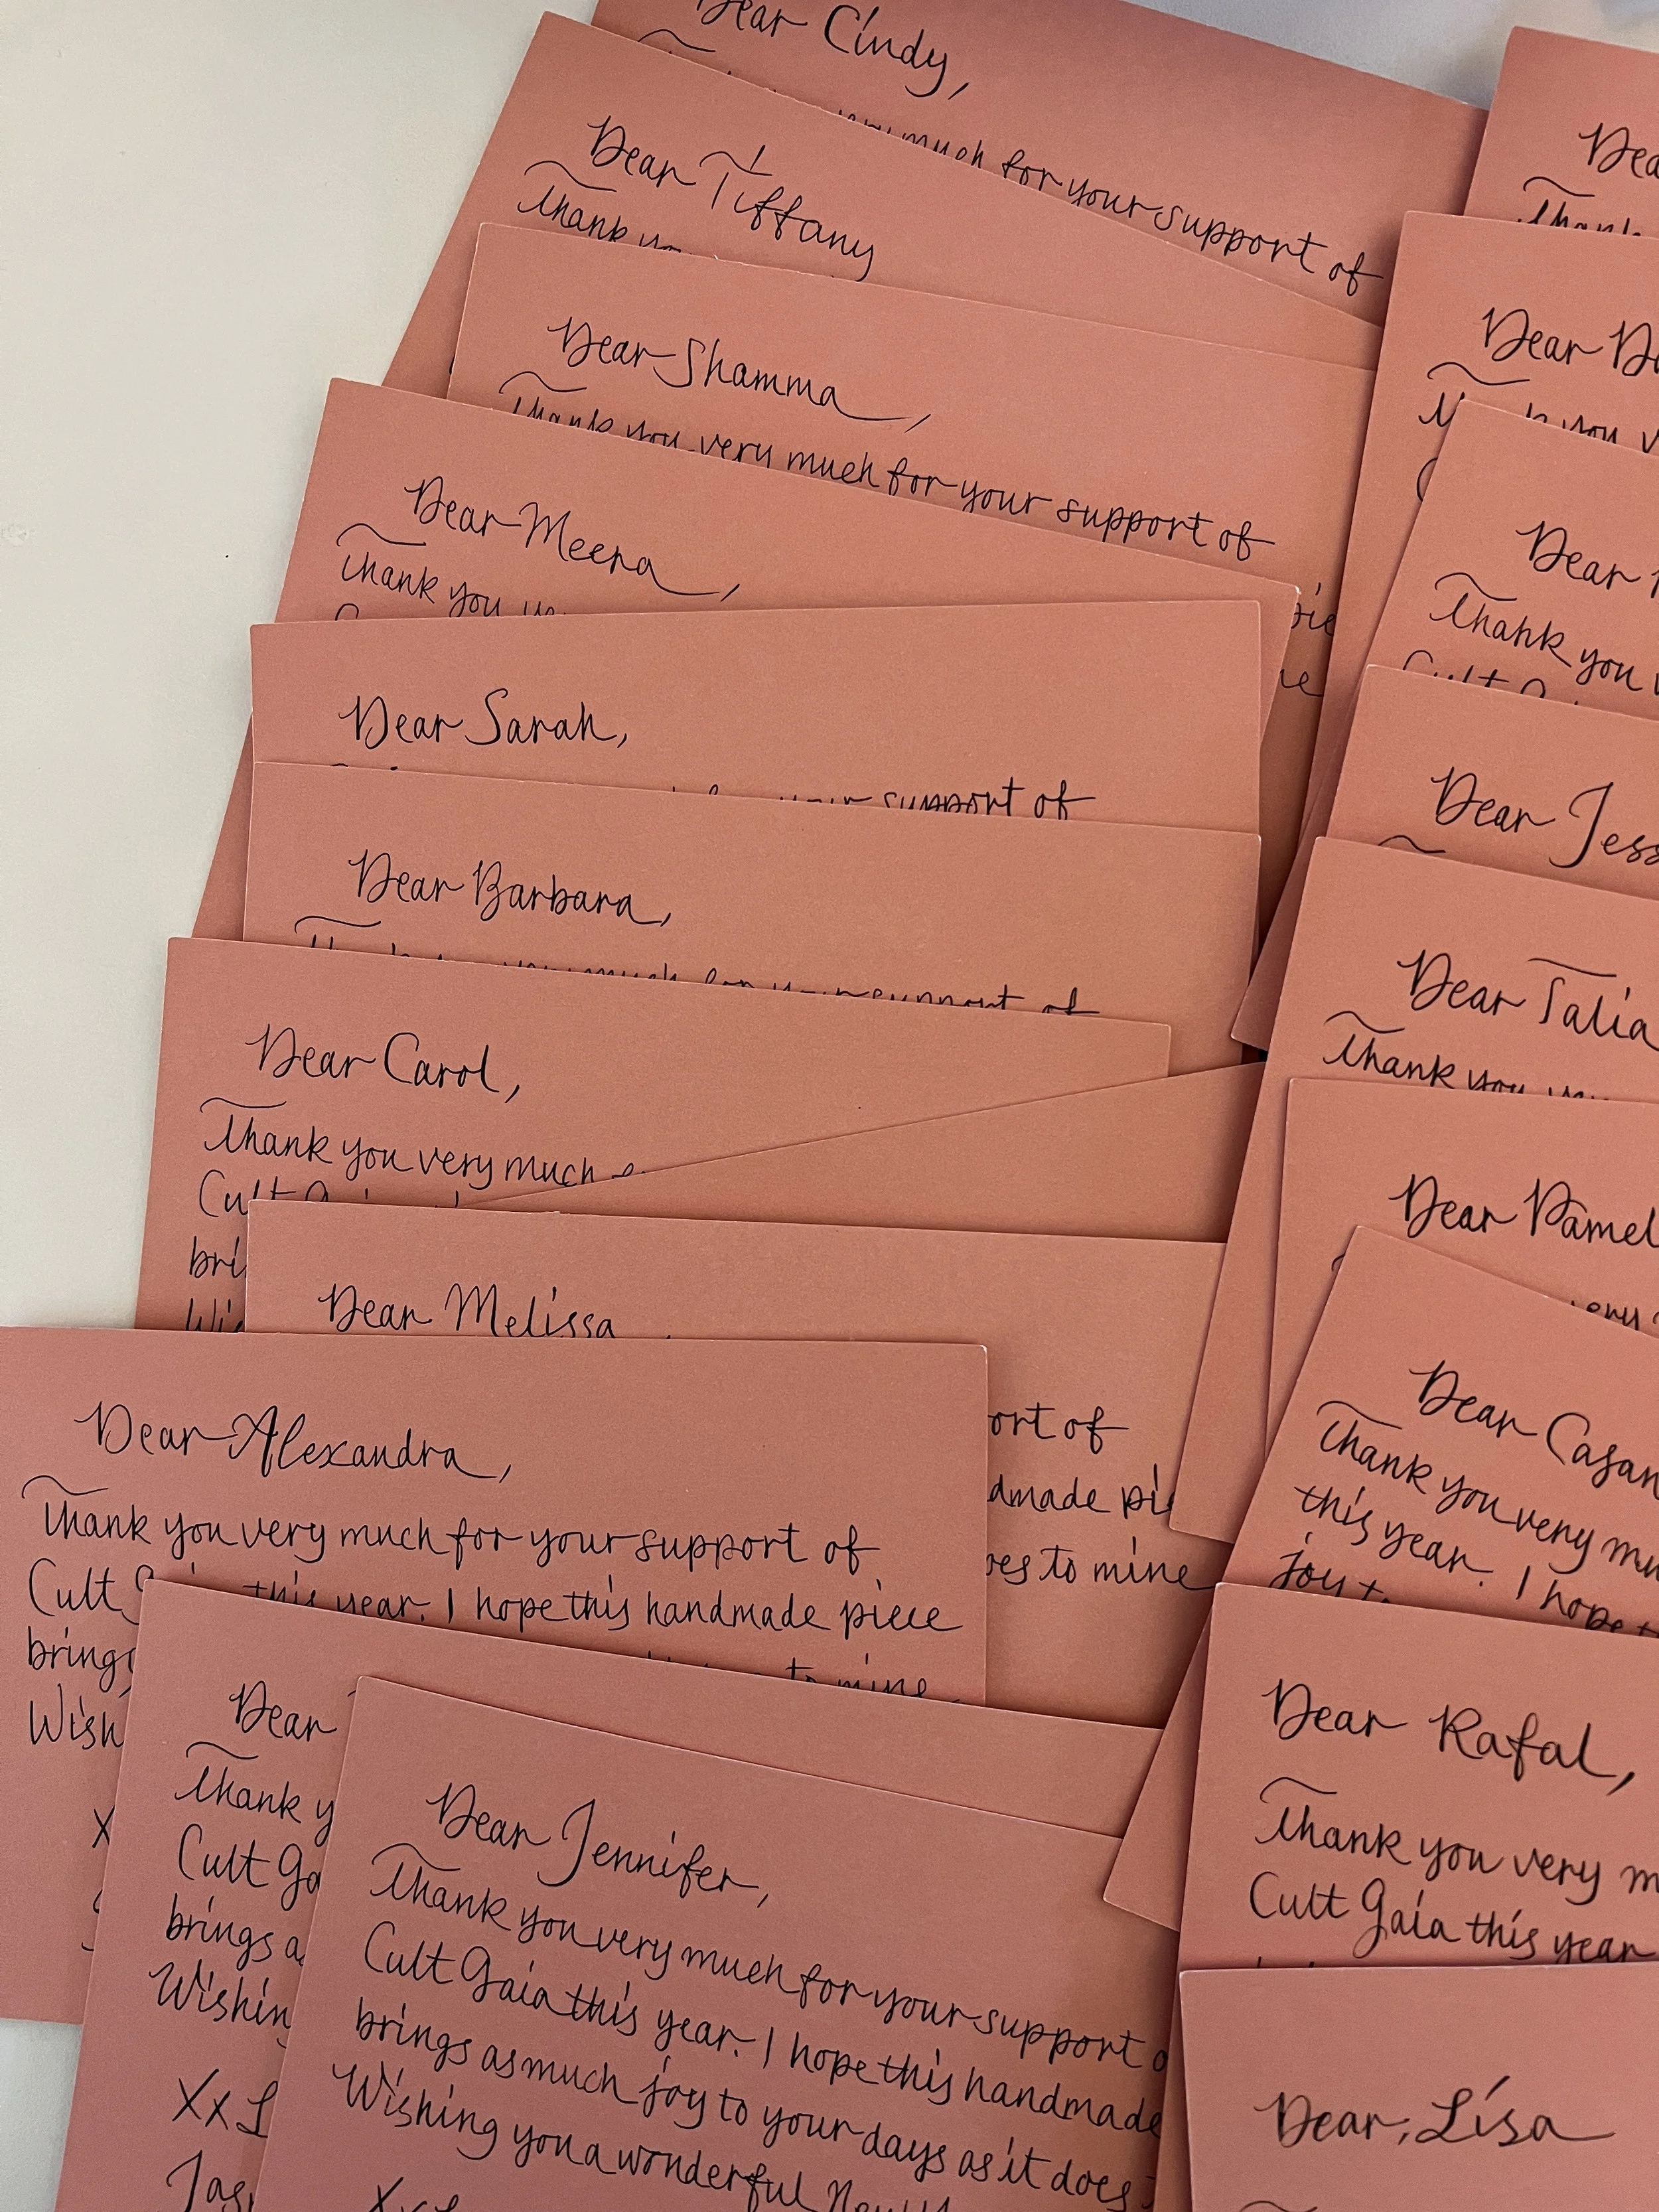 Dear Cindy,
very much for your support of
Dear Tiffany
Thank
Dear Shamma,
Thank you very much for your support of
Dear Meera,
Thank you
Dear Sarah,
support of
Dear Barbara,
very much for your support of
Dear Carol,
Thank you very much
Cult
bri
Wi
Dear Melissa,
ort of
dmade pie
oes to mine
Dear Alexandra,
Thank you very much for your support of
Cult this year. I hope this handmade piece
brings
to mine.
Wish
X
Dear
Thank y
Cult Ga
brings a
Wishin
Xx
Jas
Dear Jennifer,
Thank you very much for your support o
Cult Gaia this year. I hope this handmade
brings as much joy to your days as it does
Wishing you a wonderful
Dea
Thank
Dear
you v
Dear
Thank you v
Cult
Dear Jess
Dear Talia
Thank you
Dear Pamel
ery
Dear Casan
Thank you very mu
this year. I hope
joy
Dear Rafal,
Thank you very m
Cult Gaia this year
Dear, Lisa